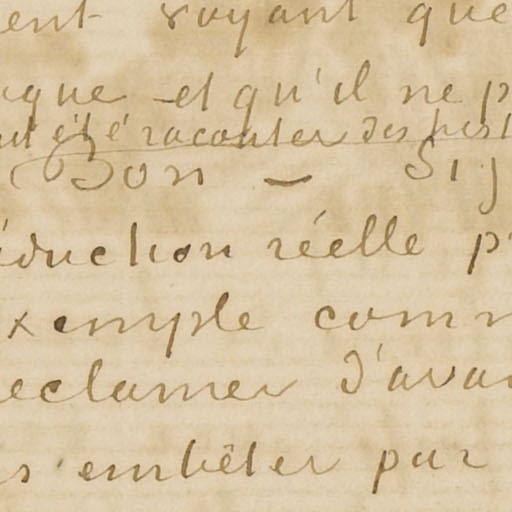 ent voyant que
ague et qu'il ne p
ut été raconter des hist
Bon — Si j
éduction réelle p
xemple comm
reclamer d'avan
s embêter par